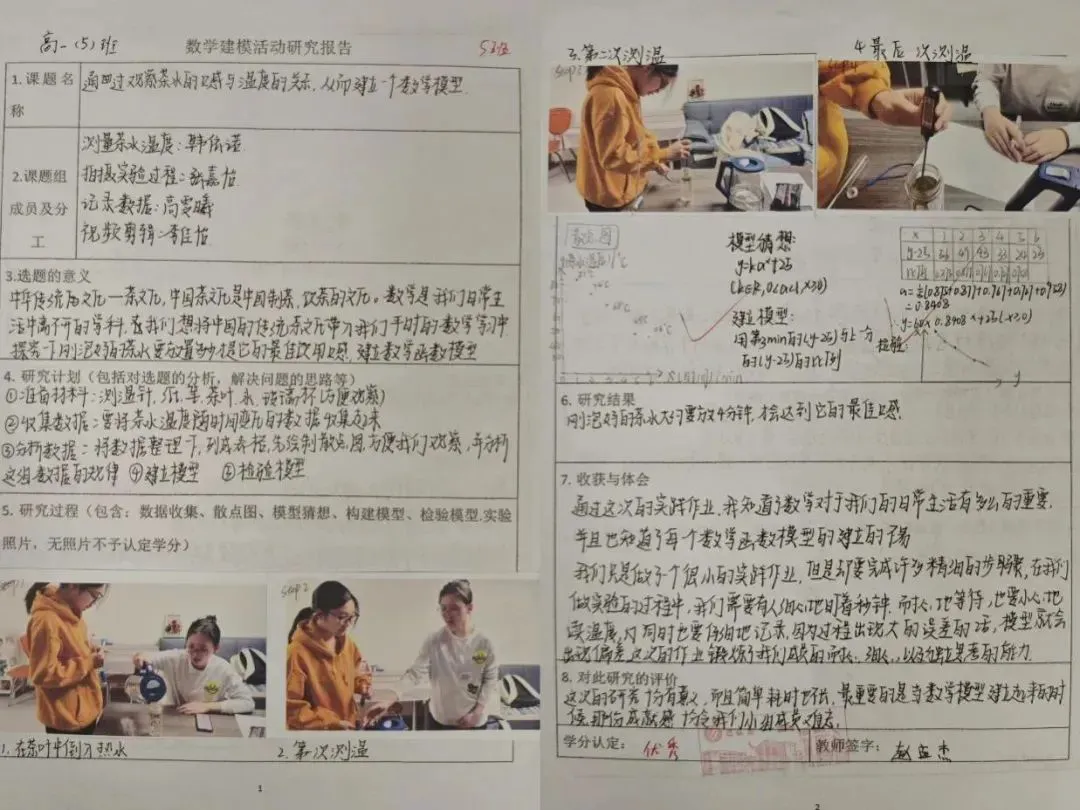 高一(5)班
数学建模活动研究报告
1.课题名
称
通过观察茶水的口感与温度的关系,从而建立一个数学模型.
2.课题组
成员及分
工
测量茶水温度:韩
拍摄实验过程:嘉怡
记录数据:高雯曦
视频剪辑:李佳怡
3.选题的意义
中华传统文化—茶文化,中国茶文化是中国制茶、饮茶的文化。数学是我们日常生
活中离不开的学科,我们想将中国的传统茶文化带入我们平时的数学学习中
探究一下刚泡好的茶水要放置多少提它的最佳饮用口感.建立数学函数模型
4. 研究计划(包括对选题的分析,解决问题的思路等)
①准备材料:测温针、纸、笔、茶叶、水、玻璃杯(方便观察)
②收集数据:要将茶水温度随时间变化的数据收集起来
③分析数据:将数据整理下,列成表格,先绘制散点图,方便我们观察,并分析
这组数据的规律 ④建立模型 ⑤检验模型
5. 研究过程(包含:数据收集、散点图、模型猜想、构建模型、检验模型.实验
照片,无照片不予认定学分)
Step2
1.在茶叶中倒入热水
2.第一次测温
1
3.第二次测温
4.最后一次测温
散点图
模型猜想:
y=kaˣ+25
(k∈R,0<a<1,x≥0)
建立模型:
用第3min的(y-25)与上一分
的(y-25)的比例
x 1 2 3 4 5 6
y-25
比值
=0.8908
y=60×0.8908ˣ+25(x≥0)
检验:
6. 研究结果
刚泡好的茶水大约要放4分钟,才会达到它的最佳口感.
7. 收获与体会
通过这次的实践作业,我知道了数学对于我们的日常生活有多么的重要,
并且也知道了每个数学函数模型的建立的不易
我们只是做了个很小的实践作业,但是却要完成许多精细的步骤,在我们
做实验的过程中,我们需要有人细心地盯着秒钟.耐心地等待,也要小心地
读温度,同时也要仔细地记录,因为过程出现大的误差的话,模型就会
出现偏差.这次的作业锻炼了我们组员的耐心、细心,以及勤思考的能力.
8. 对此研究的评价
这次的研究十分有意义,而且简单耗时也不长,最重要的是当数学模型建立起来的时
候,那份成就感十分令我们小组耳
学分认定:
优秀
教师签字:
2